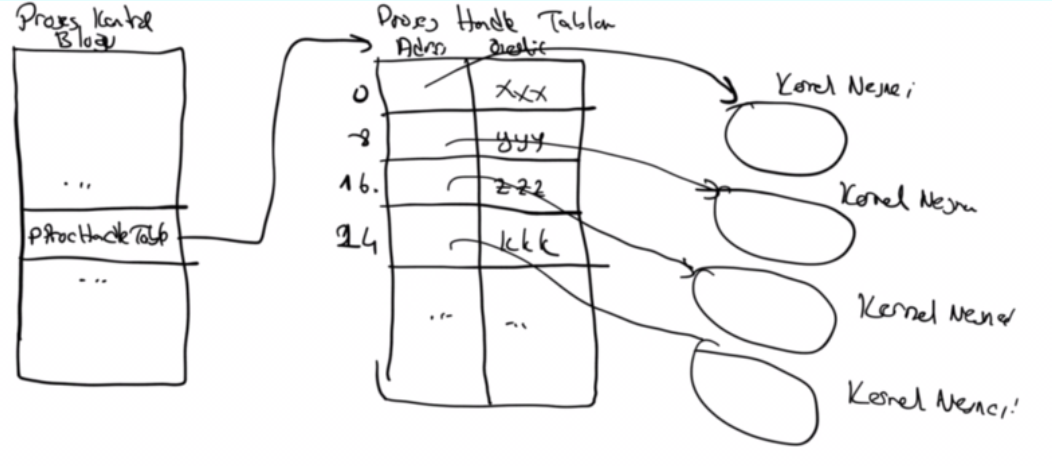 Proses Kontrol
Bloğu
...
pProcHandleTable
...
Proses Handle Tablosu
Adres
0
xxx
8
yyy
16.
zzz
24
kkk
...
...
Kernel Nesnesi
Kernel Nesnesi
Kernel Nesnesi
Kernel Nesnesi